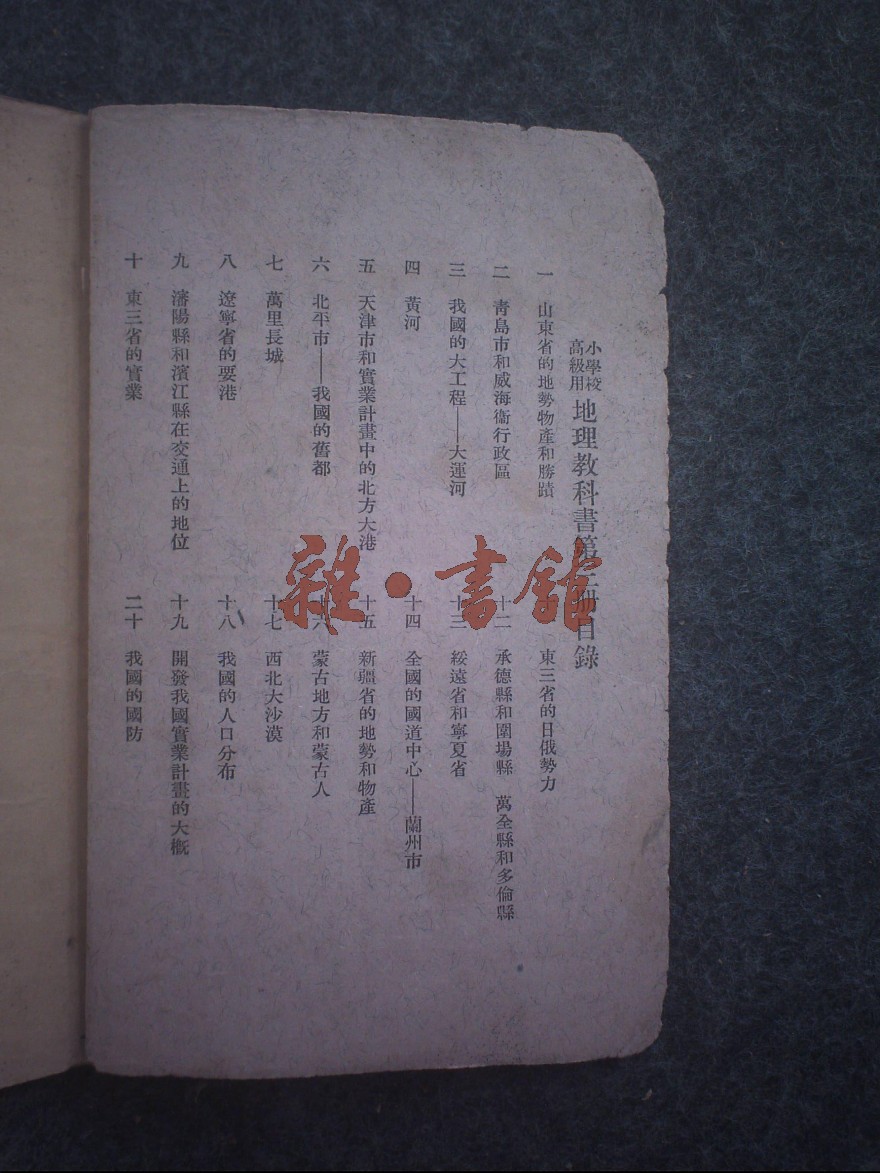 小學校
高級用
地理教科書第 冊目錄
一 山東省的地勢物產和勝蹟
二 青島市和威海衞行政區
三 我國的大工程——大運河
四 黃河
五 天津市和實業計畫中的北方大港
六 北平市——我國的舊都
七 萬里長城
八 遼寧省的要港
九 瀋陽縣和濱江縣在交通上的地位
十 東三省的實業
東三省的日俄勢力
十二 承德縣和圍場縣 萬全縣和多倫縣
十三 綏遠省和寧夏省
十四 全國的國道中心——蘭州市
十五 新疆省的地勢和物產
十六 蒙古地方和蒙古人
十七 西北大沙漠
十八 我國的人口分布
十九 開發我國實業計畫的大概
二十 我國的國防
雜·書館